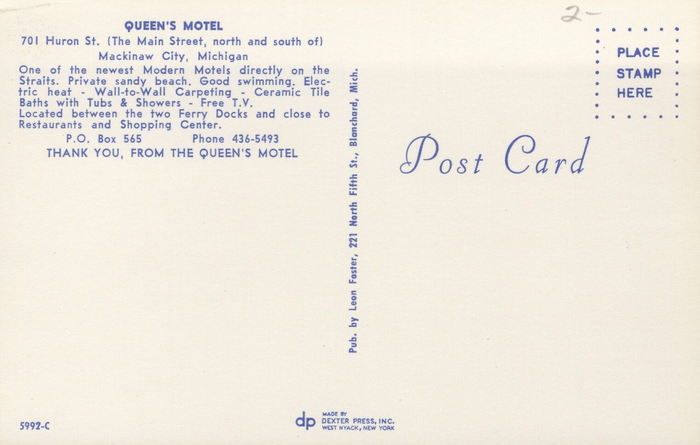 QUEEN'S MOTEL
701 Huron St. (The Main Street, north and south of)
Mackinaw City, Michigan
One of the newest Modern Motels directly on the
Straits. Private sandy beach. Good swimming. Elec-
tric heat - Wall-to-Wall Carpeting - Ceramic Tile
Baths with Tubs & Showers - Free T.V.
Located between the two Ferry Docks and close to
Restaurants and Shopping Center.
P.O. Box 565 Phone 436-5493
THANK YOU, FROM THE QUEEN'S MOTEL
5992-C
Pub. by Leon Foster, 221 North Fifth St., Blanchard, Mich.
dp MADE BY
DEXTER PRESS, INC.
WEST NYACK, NEW YORK
2-
PLACE
STAMP
HERE
Post Card